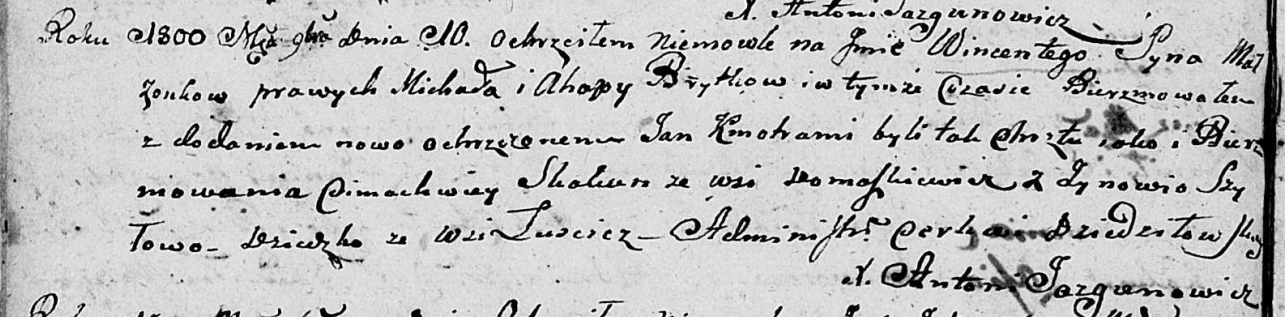 X. Antoni Jazgunowicz
Roku 1800 Mca 9bra Dnia 10. Ochrzciłem Niemowle na Jmie Wincentego Syna Mał
żonkow prawych Michała i Ahapy Brytkow i w tymże Czasie Bierzmowałem
z dodaniem nowo ochrzczonemu Jan Kmotrami byli tak Chrztu jako i Bierz
mowania Cimachwiey Skakun ze wsi Domaszkiewicz z Zynowio Szy
łowo - Dziewko ze wsi Lusticz - Administr. Cerkwi Dziedziłow
X. Antoni Jazgunowicz